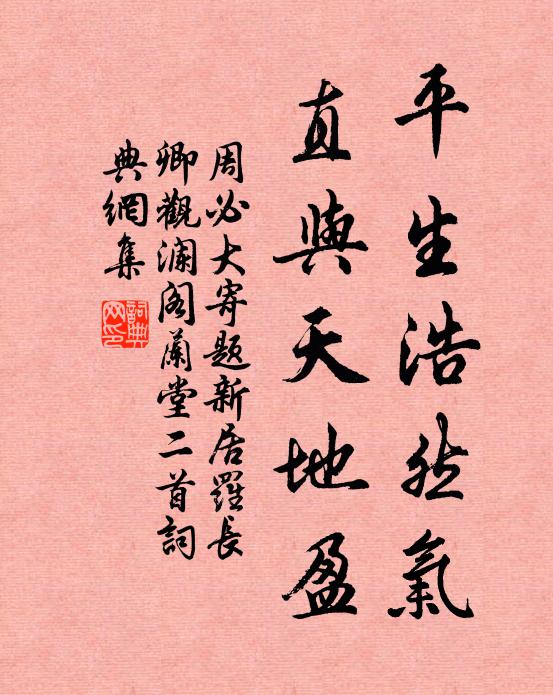 平生浩然氣
直與天地盈
周必大寄題新居羅長
卿觀瀾阁蘭堂二首詞
典網集
詞典
网印